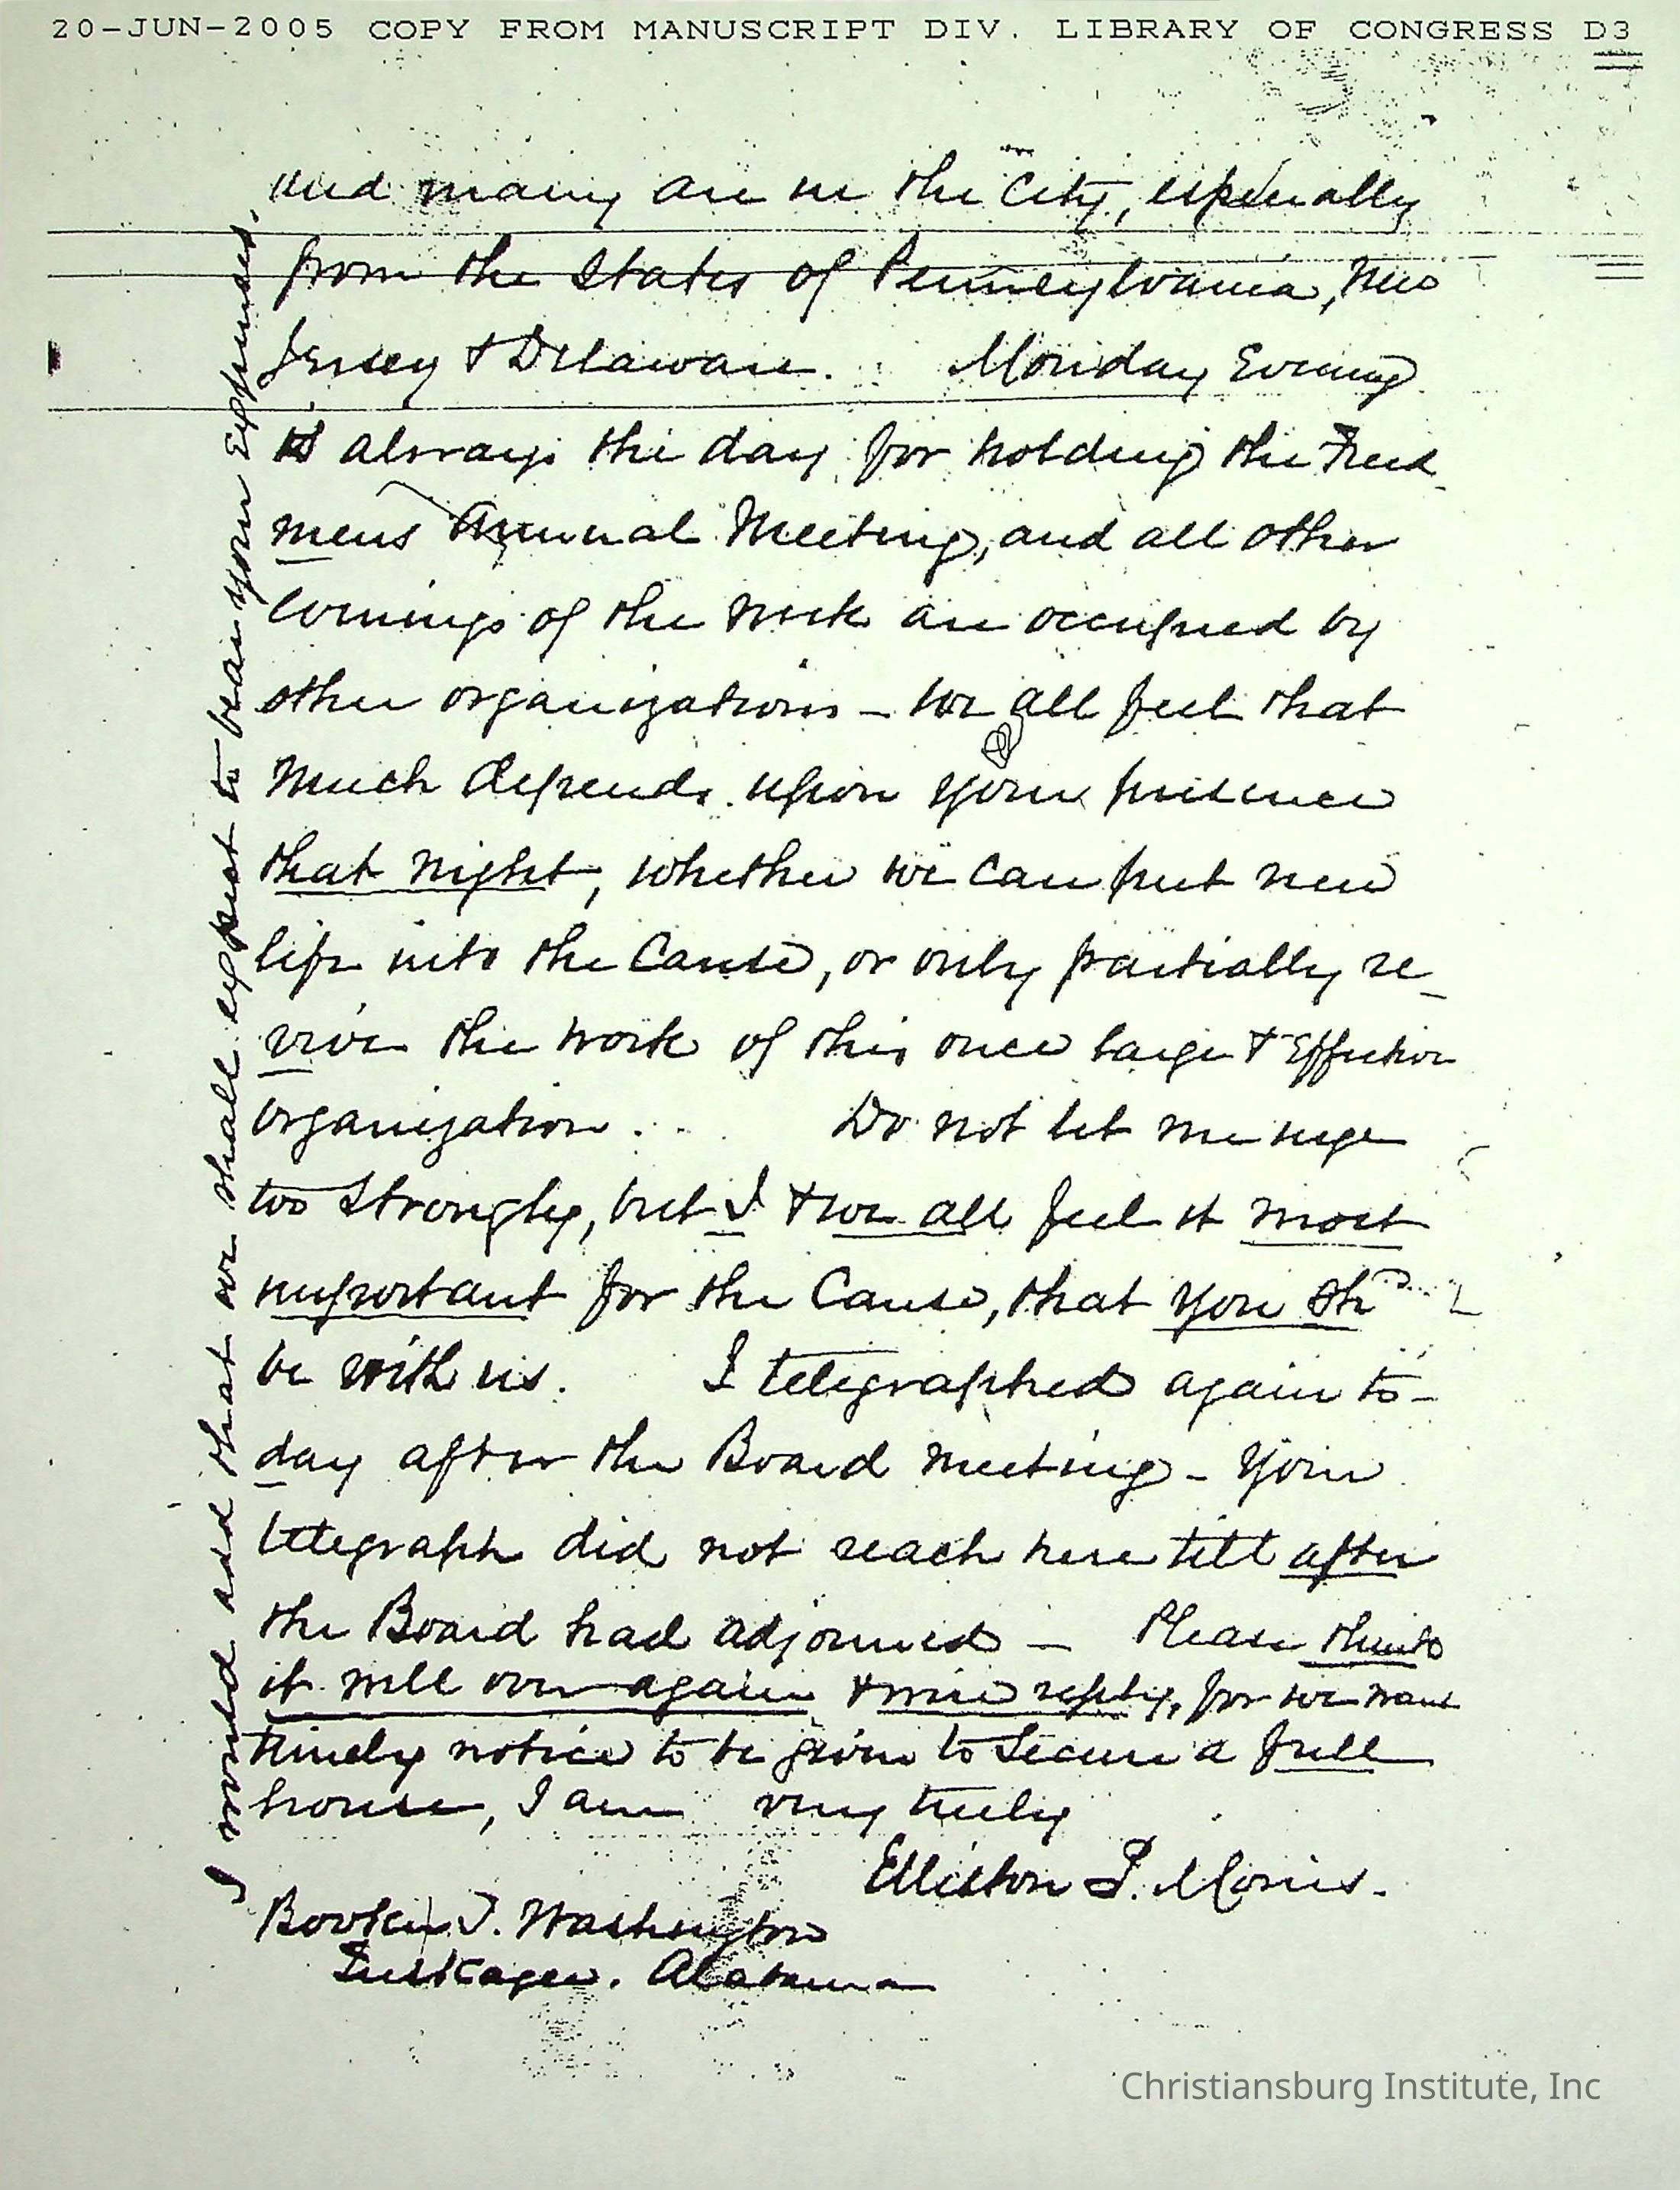 20-JUN-2005 COPY FROM MANUSCRIPT DIV. LIBRARY OF CONGRESS D3
and many are in the city, especially
from the States of Pennsylvania, New
Jersey & Delaware. Monday Evening
is always the day for holding the Freed
mens Annual Meeting, and all other
evenings of the week are occupied by
other organizations - we all feel that
much depends upon your presence
that night, whether we can put new
life into the Cause, or only partially re-
vive the work of this once large & Effective
organization. Do not let me urge
too strongly, but I & we all feel it most
important for the Cause, that you shd
be with us. I telegraphed again to-
day after the Board meeting - your
telegraph did not reach here till after
the Board had adjourned - Please think
it well over again & wire reply, for we want
timely notice to be given to secure a full
house, I am very truly
Elliston P. Morris.
Booker T. Washington
Tuskagee. Alabama
I would add that we shall expect to bear your expenses.
Christiansburg Institute, Inc